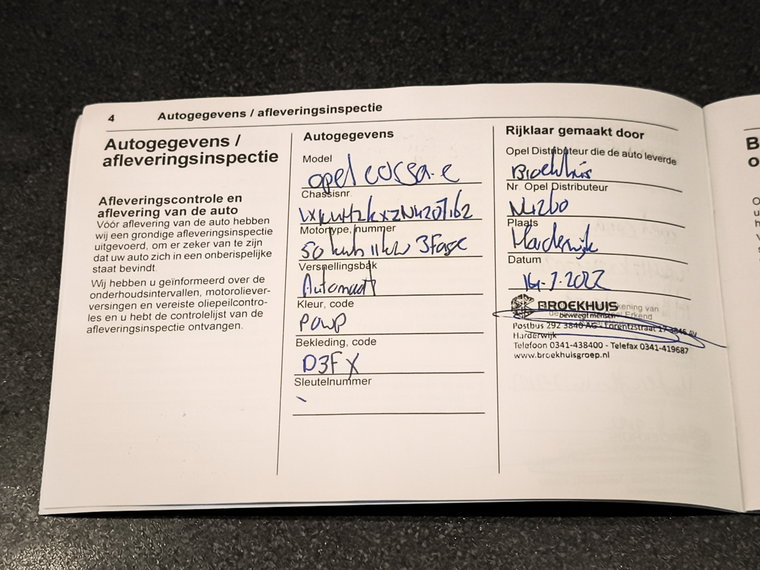 4 Autogegevens / afleveringsinspectie
Autogegevens /
afleveringsinspectie
Afleveringscontrole en
aflevering van de auto
Vóór aflevering van de auto hebben
wij een grondige afleveringsinspectie
uitgevoerd, om er zeker van te zijn
dat uw auto zich in een onberispelijke
staat bevindt
Wij hebben u geïnformeerd over de
onderhoudsintervallen, motoroliever-
versingen en vereiste oliepeilcontro-
les en u hebt de controlelijst van de
afleveringsinspectie ontvangen.
Autogegevens
Model
opel corsa-e
Chassisnr.
Motortype, nummer
50 kwh 11kw 3Fase
Versnellingsbak
Automaat
Kleur, code
P0WP
Bekleding, code
D3FX
Sleutelnummer
Rijklaar gemaakt door
Opel Distributeur die de auto leverde
Broekhuis
Nr. Opel Distributeur
Plaats
Harderwijk
Datum
14-7-2022
BROEKHUIS
beweegt mensen
Postbus 292 3840 AG - Lorentzstraat 17 3846 AV
Harderwijk
Telefoon 0341-438400 - Telefax 0341-419687
www.broekhuisgroep.nl
B